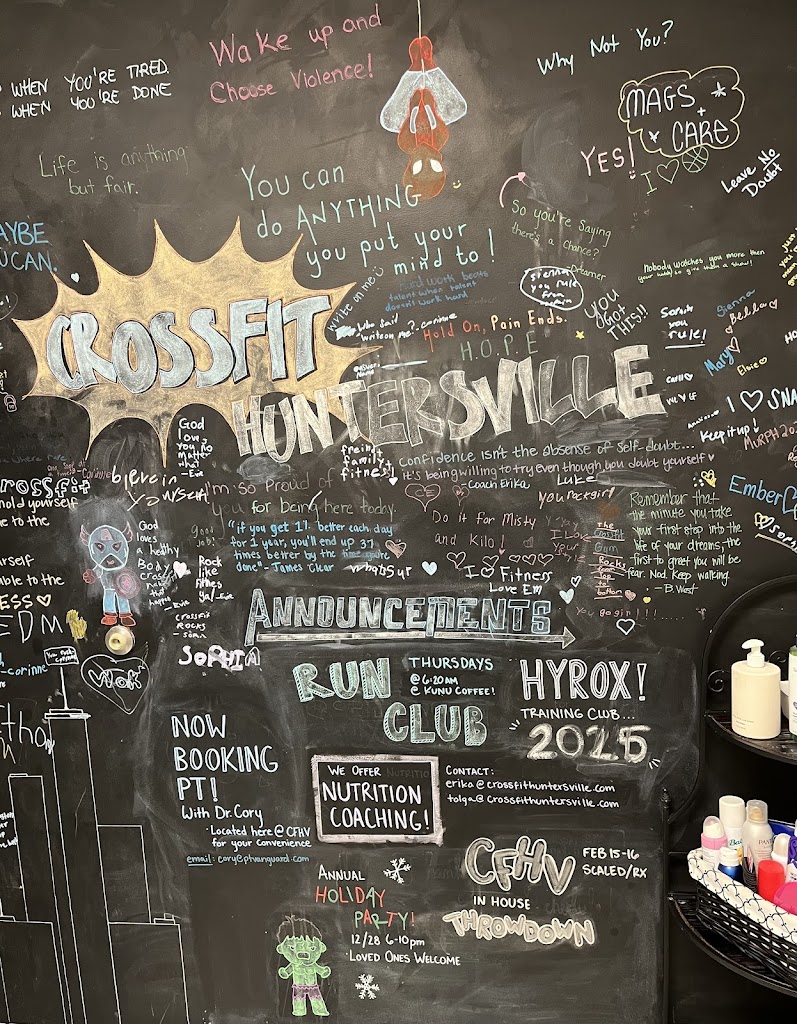 WHEN YOU'RE TIRED.
WHEN YOU'RE DONE
Wake up and
Choose Violence!
Why Not You?
MAGS
+
CARE
YES!
I ♡
Leave No
Doubt
Life is anything
but fair.
You can
do ANYTHING
you put your
mind to!
So you're saying
there's a chance?
Dreamer
Nobody watches you more than
AYBE
U CAN.
write on me
Hard work beats
talent when talent
doesn't work hard
sienna
you rule
from
YOU
GOT
THIS!!
Sarah
you
rule!
Sienna
Bella
Mary
Elsie
Hold On, Pain Ends.
H.O.P.E
CROSSFIT
HUNTERSVILLE
I ♡ SNA
Keep it up!
MURPH 202
God
love
you no
Matter
that
-Evie
freinds
family
fitness
Confidence isn't the absense of self-doubt...
it's being willing to try even though you doubt yourself
-Coach Erika
Luke
you rockgirl
believe in
yourself
I'm so Proud of
you for being here today.
Remember that
the minute you take
your first step into the
life of your dreams, the
first to greet you will be
fear. Nod. Keep walking.
-B. West
Ember
rossfit
hold yourself
e to the
urself
able to the
ESS ♡
EDM
God
loves
a healthy
Body
Good
job!
"if you get 1% better each day
for 1 year, you'll end up 37
times better by the time you're
done" - James Clear
Do it for Misty
and Kilo!
I Love
Your
The
Crossfit
Gym
Rocks
from
Top
to
bottom
Rock
like
fitness
ya!
-Evie
crossfit
ROCKS
- Sara
I ♡ Fitness
Love Em
You go girl!!
SOPHIA
-corinne
ANNOUNCEMENTS
RUN
CLUB
THURSDAYS
@ 6:20AM
@ KUNU COFFEE!
HYROX!
TRAINING CLUB...
2025
NOW
BOOKING
PT!
With Dr. Cory
· Located here @ CFHV
for your convenience
email: cory@ptvanguard.com
WE OFFER
NUTRITION
COACHING!
CONTACT:
erika@crossfithuntersville.com
tolga@crossfithuntersville.com
CFHV
FEB 15-16
SCALED/RX
IN HOUSE
THROWDOWN
ANNUAL
HOLIDAY
PARTY!
12/28 6-10pm
·LOVED ONES WELCOME